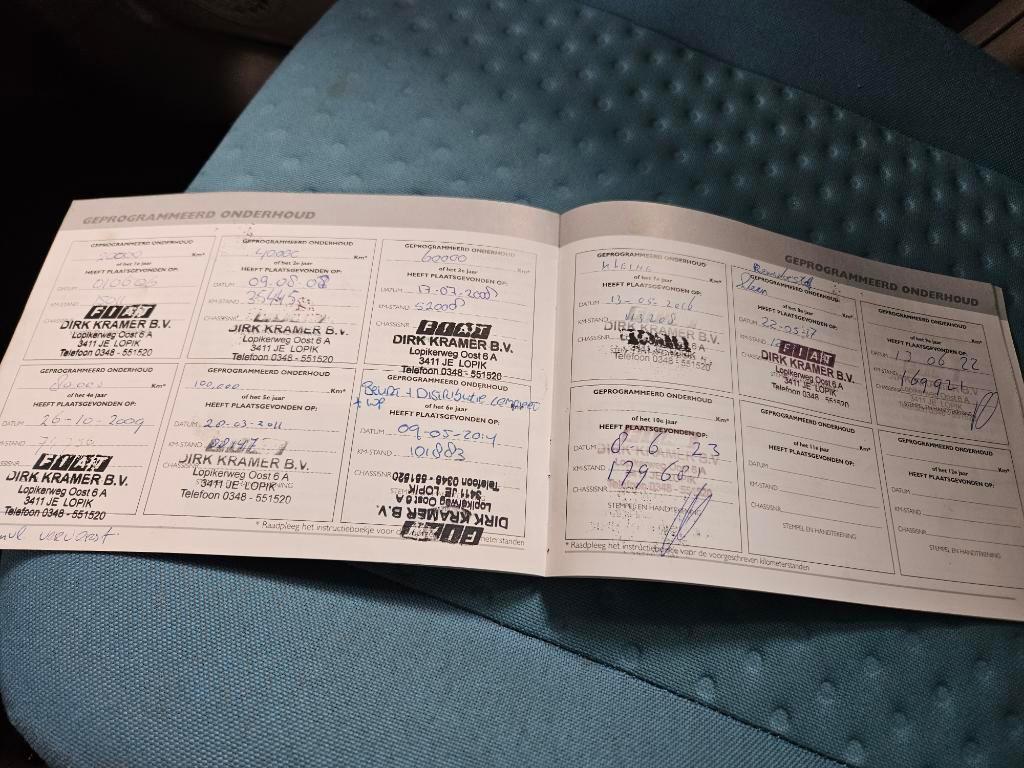 GEPROGRAMMEERD ONDERHOUD
GEPROGRAMMEERD ONDERHOUD
20000 Km*
of het 1e jaar
HEEFT PLAATSGEVONDEN OP:
DATUM
KM-STAND
FIAT
DIRK KRAMER B.V.
Lopikerweg Oost 6 A
3411 JE LOPIK
Telefoon 0348 - 551520
GEPROGRAMMEERD ONDERHOUD
40000 Km*
of het 2e jaar
HEEFT PLAATSGEVONDEN OP:
DATUM 09.08.08
KM-STAND
CHASSISNR
DIRK KRAMER B.V.
Lopikerweg Oost 6 A
3411 JE LOPIK
Telefoon 0348 - 551520
GEPROGRAMMEERD ONDERHOUD
60000 Km*
of het 3e jaar
HEEFT PLAATSGEVONDEN OP:
DATUM 17-07-2008
KM-STAND 52000
CHASSISNR
FIAT
DIRK KRAMER B.V.
Lopikerweg Oost 6 A
3411 JE LOPIK
Telefoon 0348 - 551520
GEPROGRAMMEERD ONDERHOUD
80.000 Km*
of het 4e jaar
HEEFT PLAATSGEVONDEN OP:
DATUM 26-10-2009
KM-STAND
FIAT
DIRK KRAMER B.V.
Lopikerweg Oost 6 A
3411 JE LOPIK
Telefoon 0348 - 551520
GEPROGRAMMEERD ONDERHOUD
100.000 Km*
of het 5e jaar
HEEFT PLAATSGEVONDEN OP:
DATUM 28-03-2011
KM-STAND
CHASSISNR
DIRK KRAMER B.V.
Lopikerweg Oost 6 A
3411 JE LOPIK
Telefoon 0348 - 551520
GEPROGRAMMEERD ONDERHOUD
Beurt + Distributie compleet
+ WP
of het 6e jaar
HEEFT PLAATSGEVONDEN OP:
DATUM 09-05-2014
KM-STAND 101883
CHASSISNR
FIAT
DIRK KRAMER B.V.
Lopikerweg Oost 6 A
3411 JE LOPIK
Telefoon 0348 - 551520
* Raadpleeg het instructieboekje voor de kilometerstanden
GEPROGRAMMEERD ONDERHOUD
GEPROGRAMMEERD ONDERHOUD
Kleine Km*
of het 7e jaar
HEEFT PLAATSGEVONDEN OP:
DATUM 13-05-2016
KM-STAND 113208
CHASSISNR
DIRK KRAMER B.V.
Lopikerweg Oost 6 A
3411 JE LOPIK
Telefoon 0348 - 551520
of het 8e jaar
HEEFT PLAATSGEVONDEN OP:
DATUM 22-05-17
KM-STAND
CHASSISNR
FIAT
DIRK KRAMER B.V.
Lopikerweg Oost 6 A
3411 JE LOPIK
Telefoon 0348 - 551520
GEPROGRAMMEERD ONDERHOUD
Km*
of het 9e jaar
HEEFT PLAATSGEVONDEN OP:
DATUM 13 06 22
KM-STAND 169926
CHASSISNR
GEPROGRAMMEERD ONDERHOUD
Km*
of het 10e jaar
HEEFT PLAATSGEVONDEN OP:
DATUM 8 6 23
KM-STAND
CHASSISNR
STEMPEL EN HANDTEKENING
GEPROGRAMMEERD ONDERHOUD
Km*
of het 11e jaar
HEEFT PLAATSGEVONDEN OP:
DATUM
KM-STAND
CHASSISNR
STEMPEL EN HANDTEKENING
GEPROGRAMMEERD ONDERHOUD
Km*
of het 12e jaar
HEEFT PLAATSGEVONDEN OP:
DATUM
KM-STAND
CHASSISNR
STEMPEL EN HANDTEKENING
* Raadpleeg het instructieboekje voor de voorgeschreven kilometerstanden